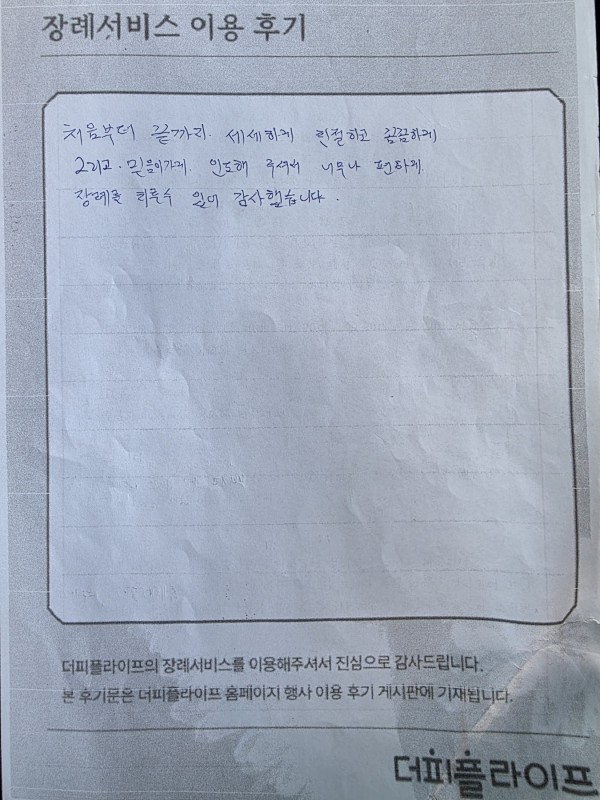 장례서비스 이용 후기
처음부터 끝까지. 세세하게 친절하고 꼼꼼하게
그리고. 믿음이가게. 인도해 주셔서 너무나 편하게.
장례를 치룰수 있어 감사했습니다.
더피플라이프의 장례서비스를 이용해주셔서 진심으로 감사드립니다.
본 후기문은 더피플라이프 홈페이지 행사 이용 후기 게시판에 기재됩니다.
더피플라이프